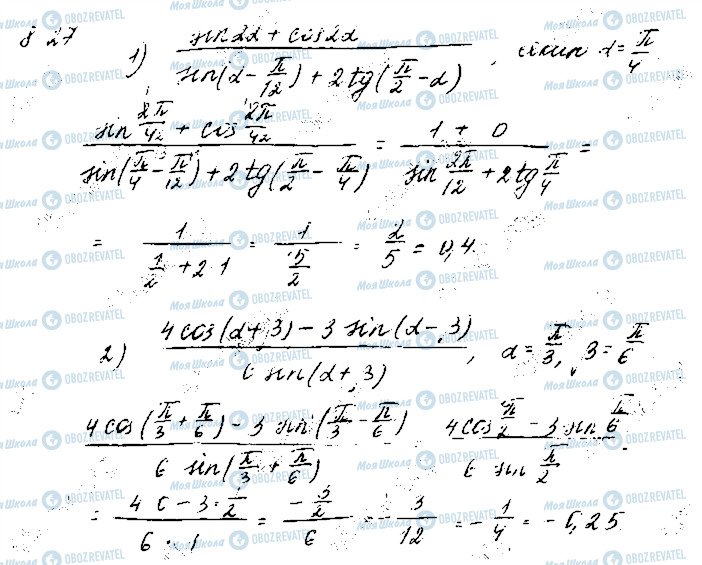 8 27
1) (sin 2α + cos 2α) / (sin(α − π/12) + 2 tg(π/2 − α)), якщо α = π/4
(sin 2π/4 + cos 2π/4) / (sin(π/4 − π/12) + 2 tg(π/2 − π/4)) = (1 + 0) / (sin 2π/12 + 2 tg π/4) =
= 1 / (1/2 + 2·1) = 1 / (5/2) = 2/5 = 0,4.
2) (4 cos(α + β) − 3 sin(α − β)) / (6 sin(α + β)), α = π/3, β = π/6
(4 cos(π/3 + π/6) − 3 sin(π/3 − π/6)) / (6 sin(π/3 + π/6)) (4 cos π/2 − 3 sin π/6) / (6 sin π/2)
= (4·0 − 3·1/2) / (6·1) = (−3/2) / 6 = −3/12 = −1/4 = −0,25
Моя Школа OBOZREVATEL